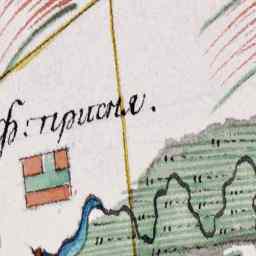 ф: присня.